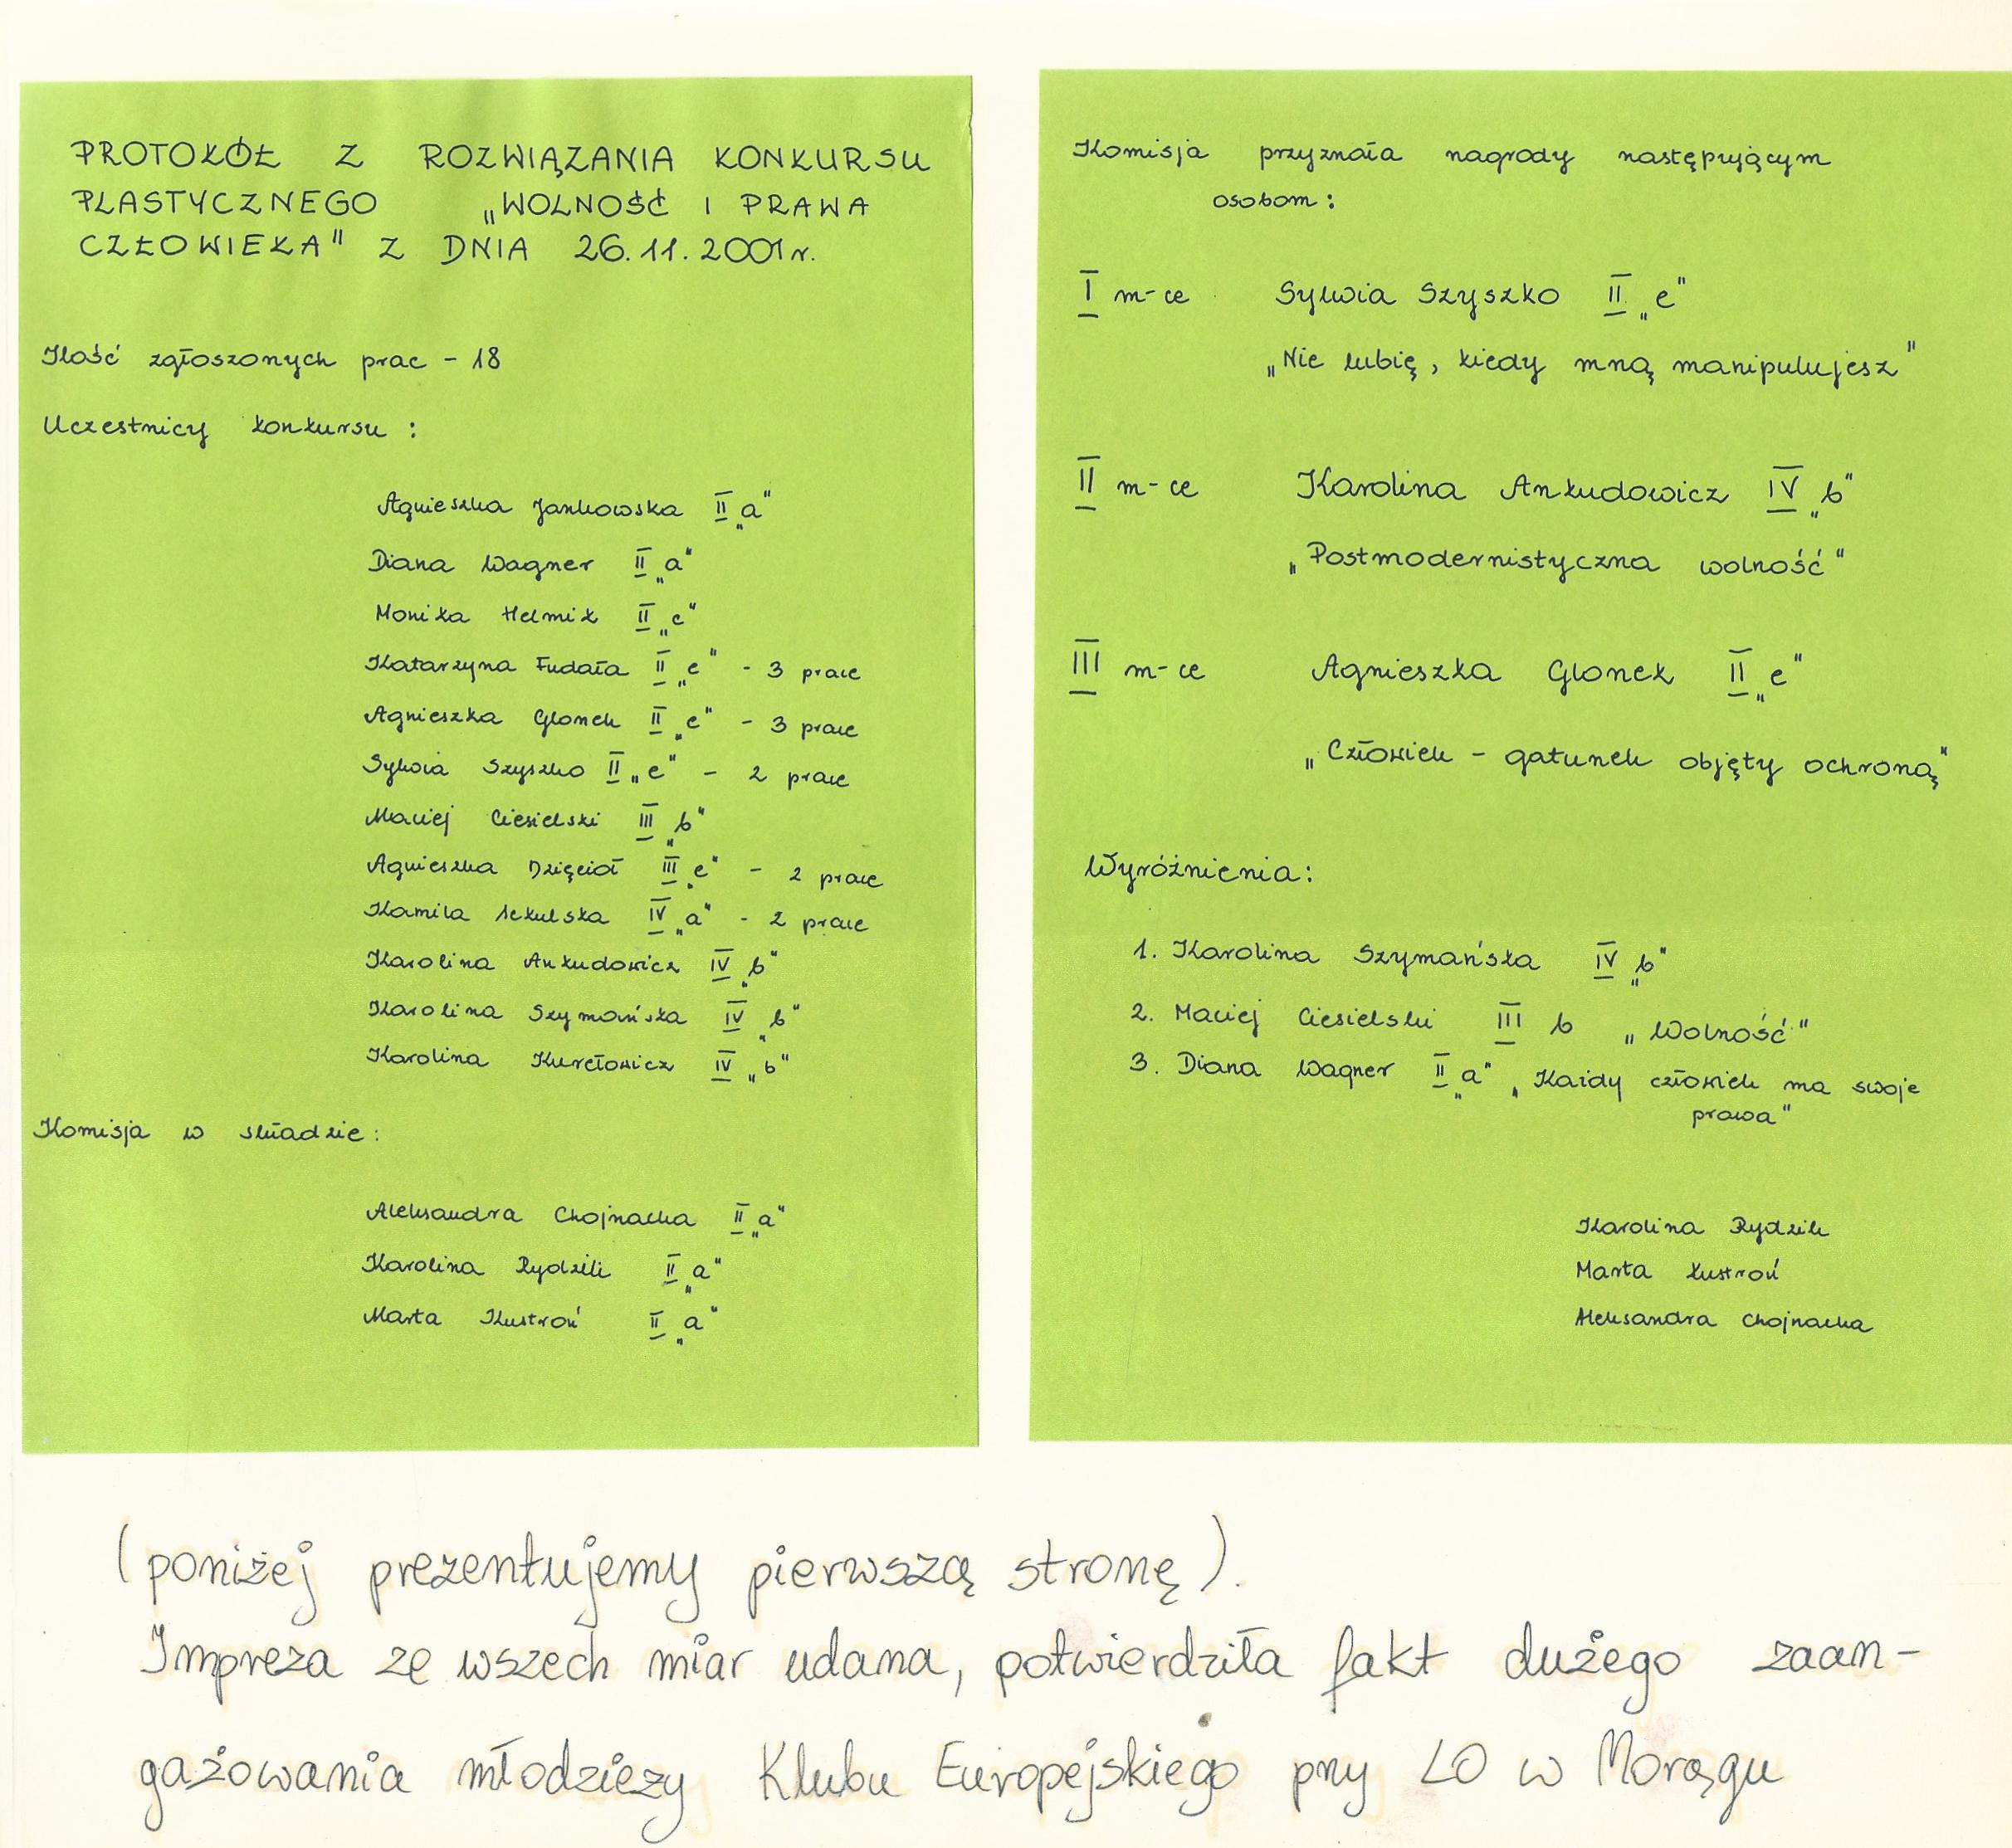 PROTOKÓŁ Z ROZWIĄZANIA KONKURSU
PLASTYCZNEGO „WOLNOŚĆ I PRAWA
CZŁOWIEKA" Z DNIA 26.11.2001r.
Ilość zgłoszonych prac - 18
Uczestnicy konkursu :
Agnieszka Jankowska II „a"
Diana Wagner II „a"
Monika Helmik II „c"
Katarzyna Fudała II „e" - 3 prace
Agnieszka Glonek II „e" - 3 prace
Sylwia Szyszko II „e" - 2 prace
Maciej Ciesielski III „b"
Agnieszka Dzięcioł III „e" - 2 prace
Kamila IV „a" - 2 prace
Karolina Ankudowicz IV „b"
Karolina Szymańska IV „b"
Karolina Kurełowicz IV „b"
Komisja w składzie :
Aleksandra Chojnacka II „a"
Karolina Rydzik II „a"
Marta Kustroń II „a"
Komisja przyznała nagrody następującym
osobom :
I m-ce Sylwia Szyszko II „e"
„Nie lubię, kiedy mną manipulujesz"
II m-ce Karolina Ankudowicz IV „b"
„Postmodernistyczna wolność"
III m-ce Agnieszka Glonek II „e"
„Człowiek - gatunek objęty ochroną"
Wyróżnienia :
1. Karolina Szymańska IV „b"
2. Maciej Ciesielski III b „Wolność"
3. Diana Wagner II „a" „Każdy człowiek ma swoje
prawa"
Karolina Rydzik
Marta Kustroń
Aleksandra Chojnacka
(poniżej prezentujemy pierwszą stronę).
Impreza ze wszech miar udana, potwierdziła fakt dużego zaan-
gażowania młodzieży Klubu Europejskiego przy LO w Morągu